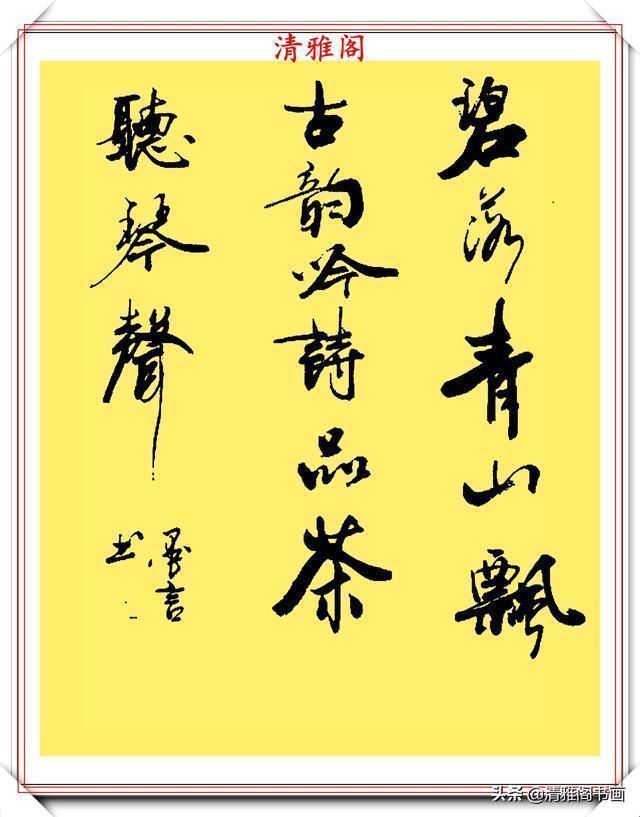 清雅阁
碧落青山飄
古韵吟詩品茶
聽琴聲
墨言
书
头条@清雅阁书画